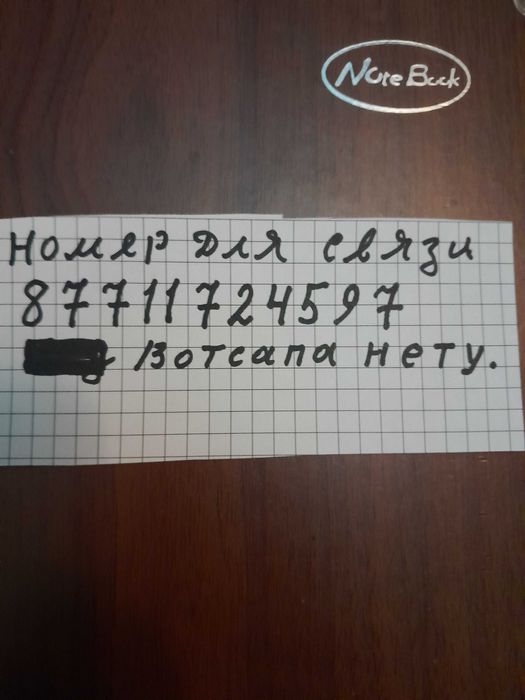 Note Book
Номер для связи
87711724597
Вотсапа нету.